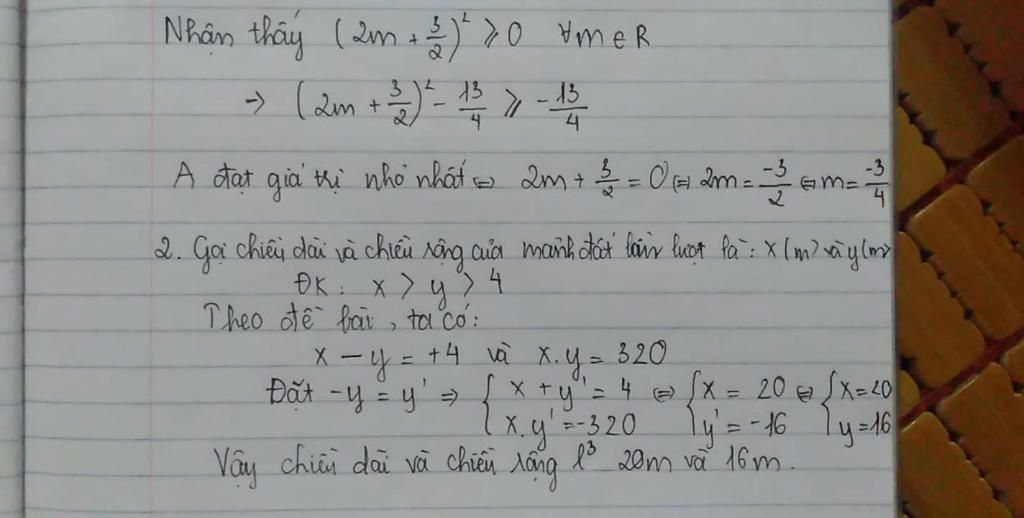 Nhận thấy (2m + 3/2)² ⩾ 0 ∀m ∈ R
→ (2m + 3/2)² - 13/4 ⩾ -13/4
A đạt giá trị nhỏ nhất ⇔ 2m + 3/2 = 0 ⇔ 2m = -3/2 ⇔ m = -3/4
2. Gọi chiều dài và chiều rộng của mảnh đất lần lượt là: x (m) và y (m)
ĐK: x > y > 4
Theo đề bài, ta có:
x - y = +4 và x.y = 320
Đặt -y = y' ⇒ { x + y' = 4 ⇔ { x = 20 ⇔ { x = 20
x.y' = -320 y' = -16 y = 16
Vậy chiều dài và chiều rộng l³ 20m và 16m.